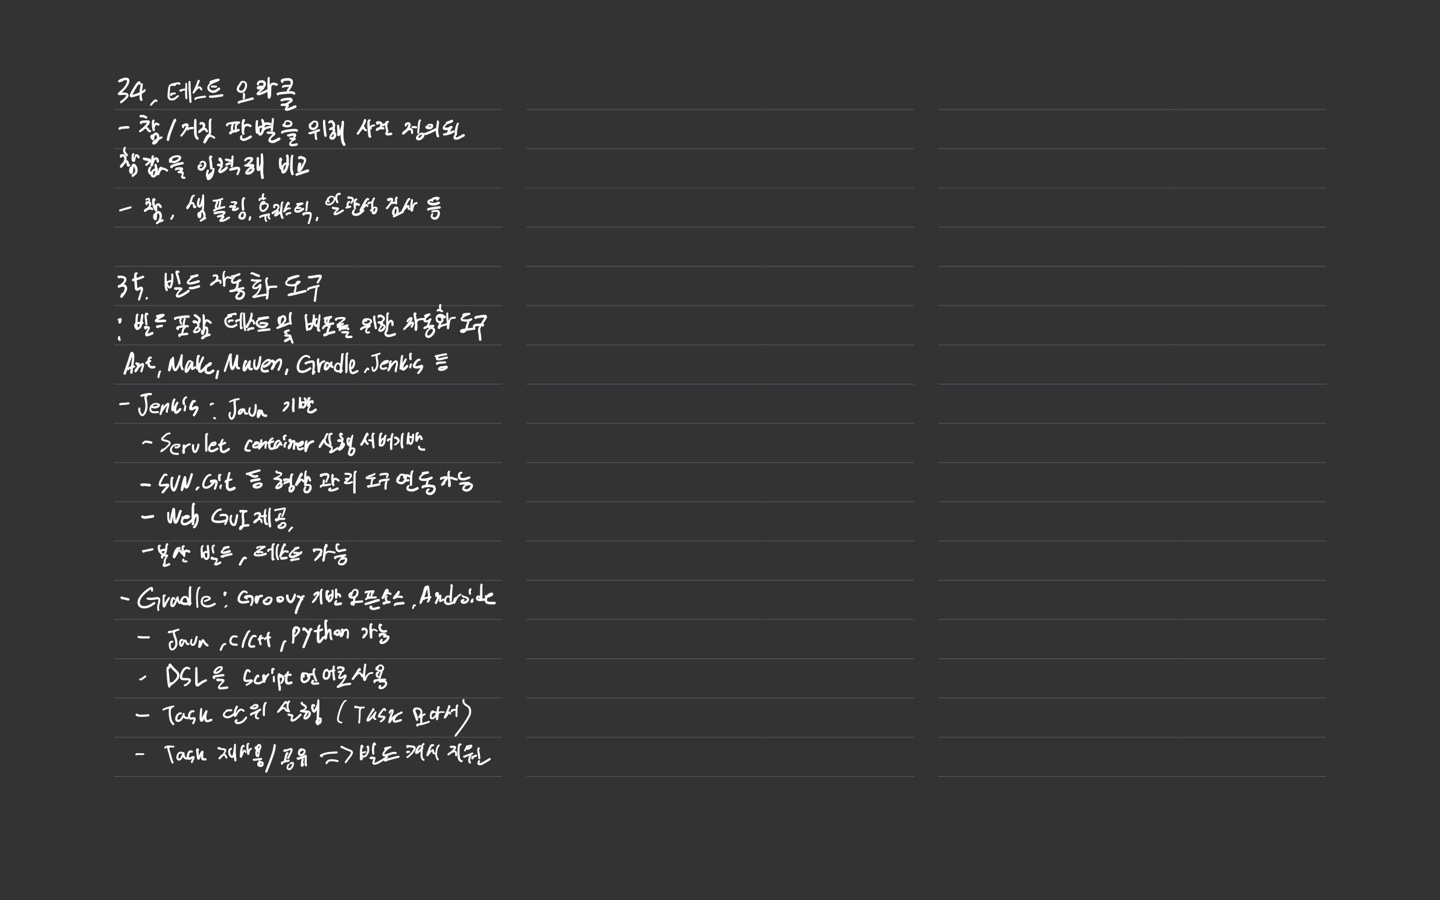 34. 테스트 오라클
- 참/거짓 판별을 위해 사전 정의된
참값을 입력해 비교
- 참, 샘플링, 휴리스틱, 일관성 검사 등
35. 빌드 자동화 도구
: 빌드 포함 테스트 및 배포를 위한 자동화 도구
Ant, Make, Maven, Gradle, Jenkis 등
- Jenkis : Java 기반
- Servlet container 실행 서버기반
- SVN, Git 등 형상 관리 도구 연동가능
- Web GUI 제공,
- 분산 빌드, 테스트 가능
- Gradle : Groovy 기반 오픈소스, Androide
- Java, C/C++, Python 가능
- DSL을 Script 언어로 사용
- Task 단위 실행 (Task 모아서)
- Task 재사용/공유 => 빌드 캐시 지원